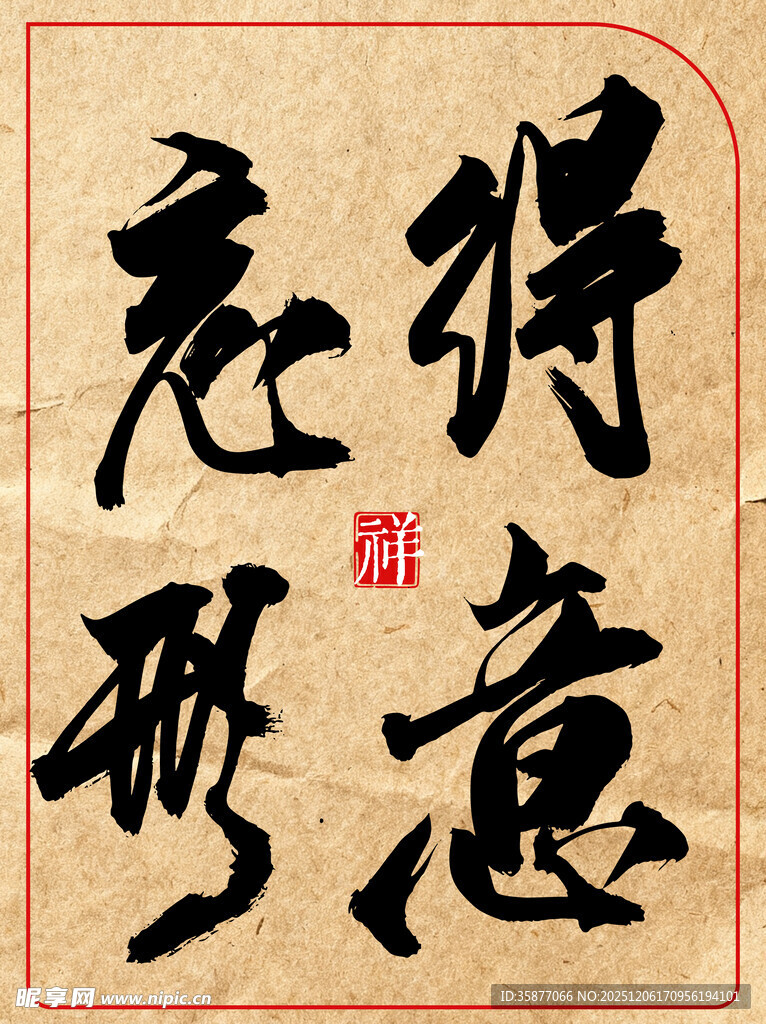 得意
忘形
祥
昵享网 www.nipic.cn
ID:35877066 NO:20251206170956194101